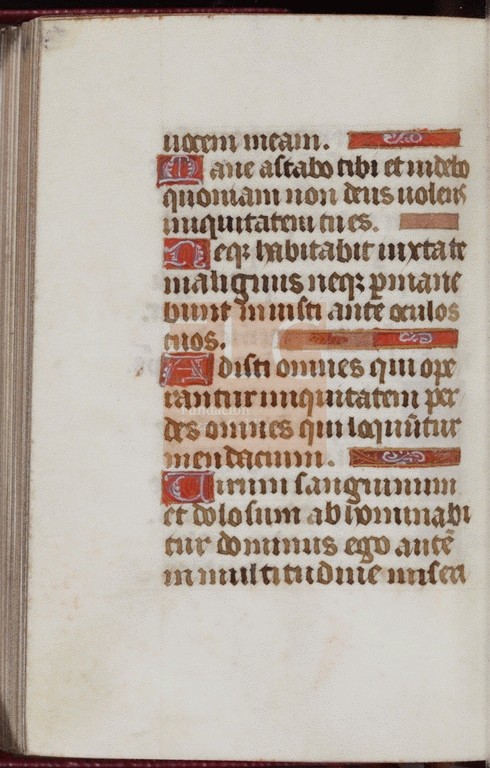 uocem meam.
Mane astabo tibi et uidebo
quoniam non deus uolens
iniquitatem tu es.
Neqꝫ habitabit iuxta te
malignus neqꝫ ꝑmane
bunt iniusti ante oculos
tuos.
Odisti omnes qui ope
rantur iniquitatem per
des omnes qui loquūtur
mendacium.
Uirum sanguinum
et dolosum abhominabi
tur dominus ego autē
in multitudine miseri
Fundación